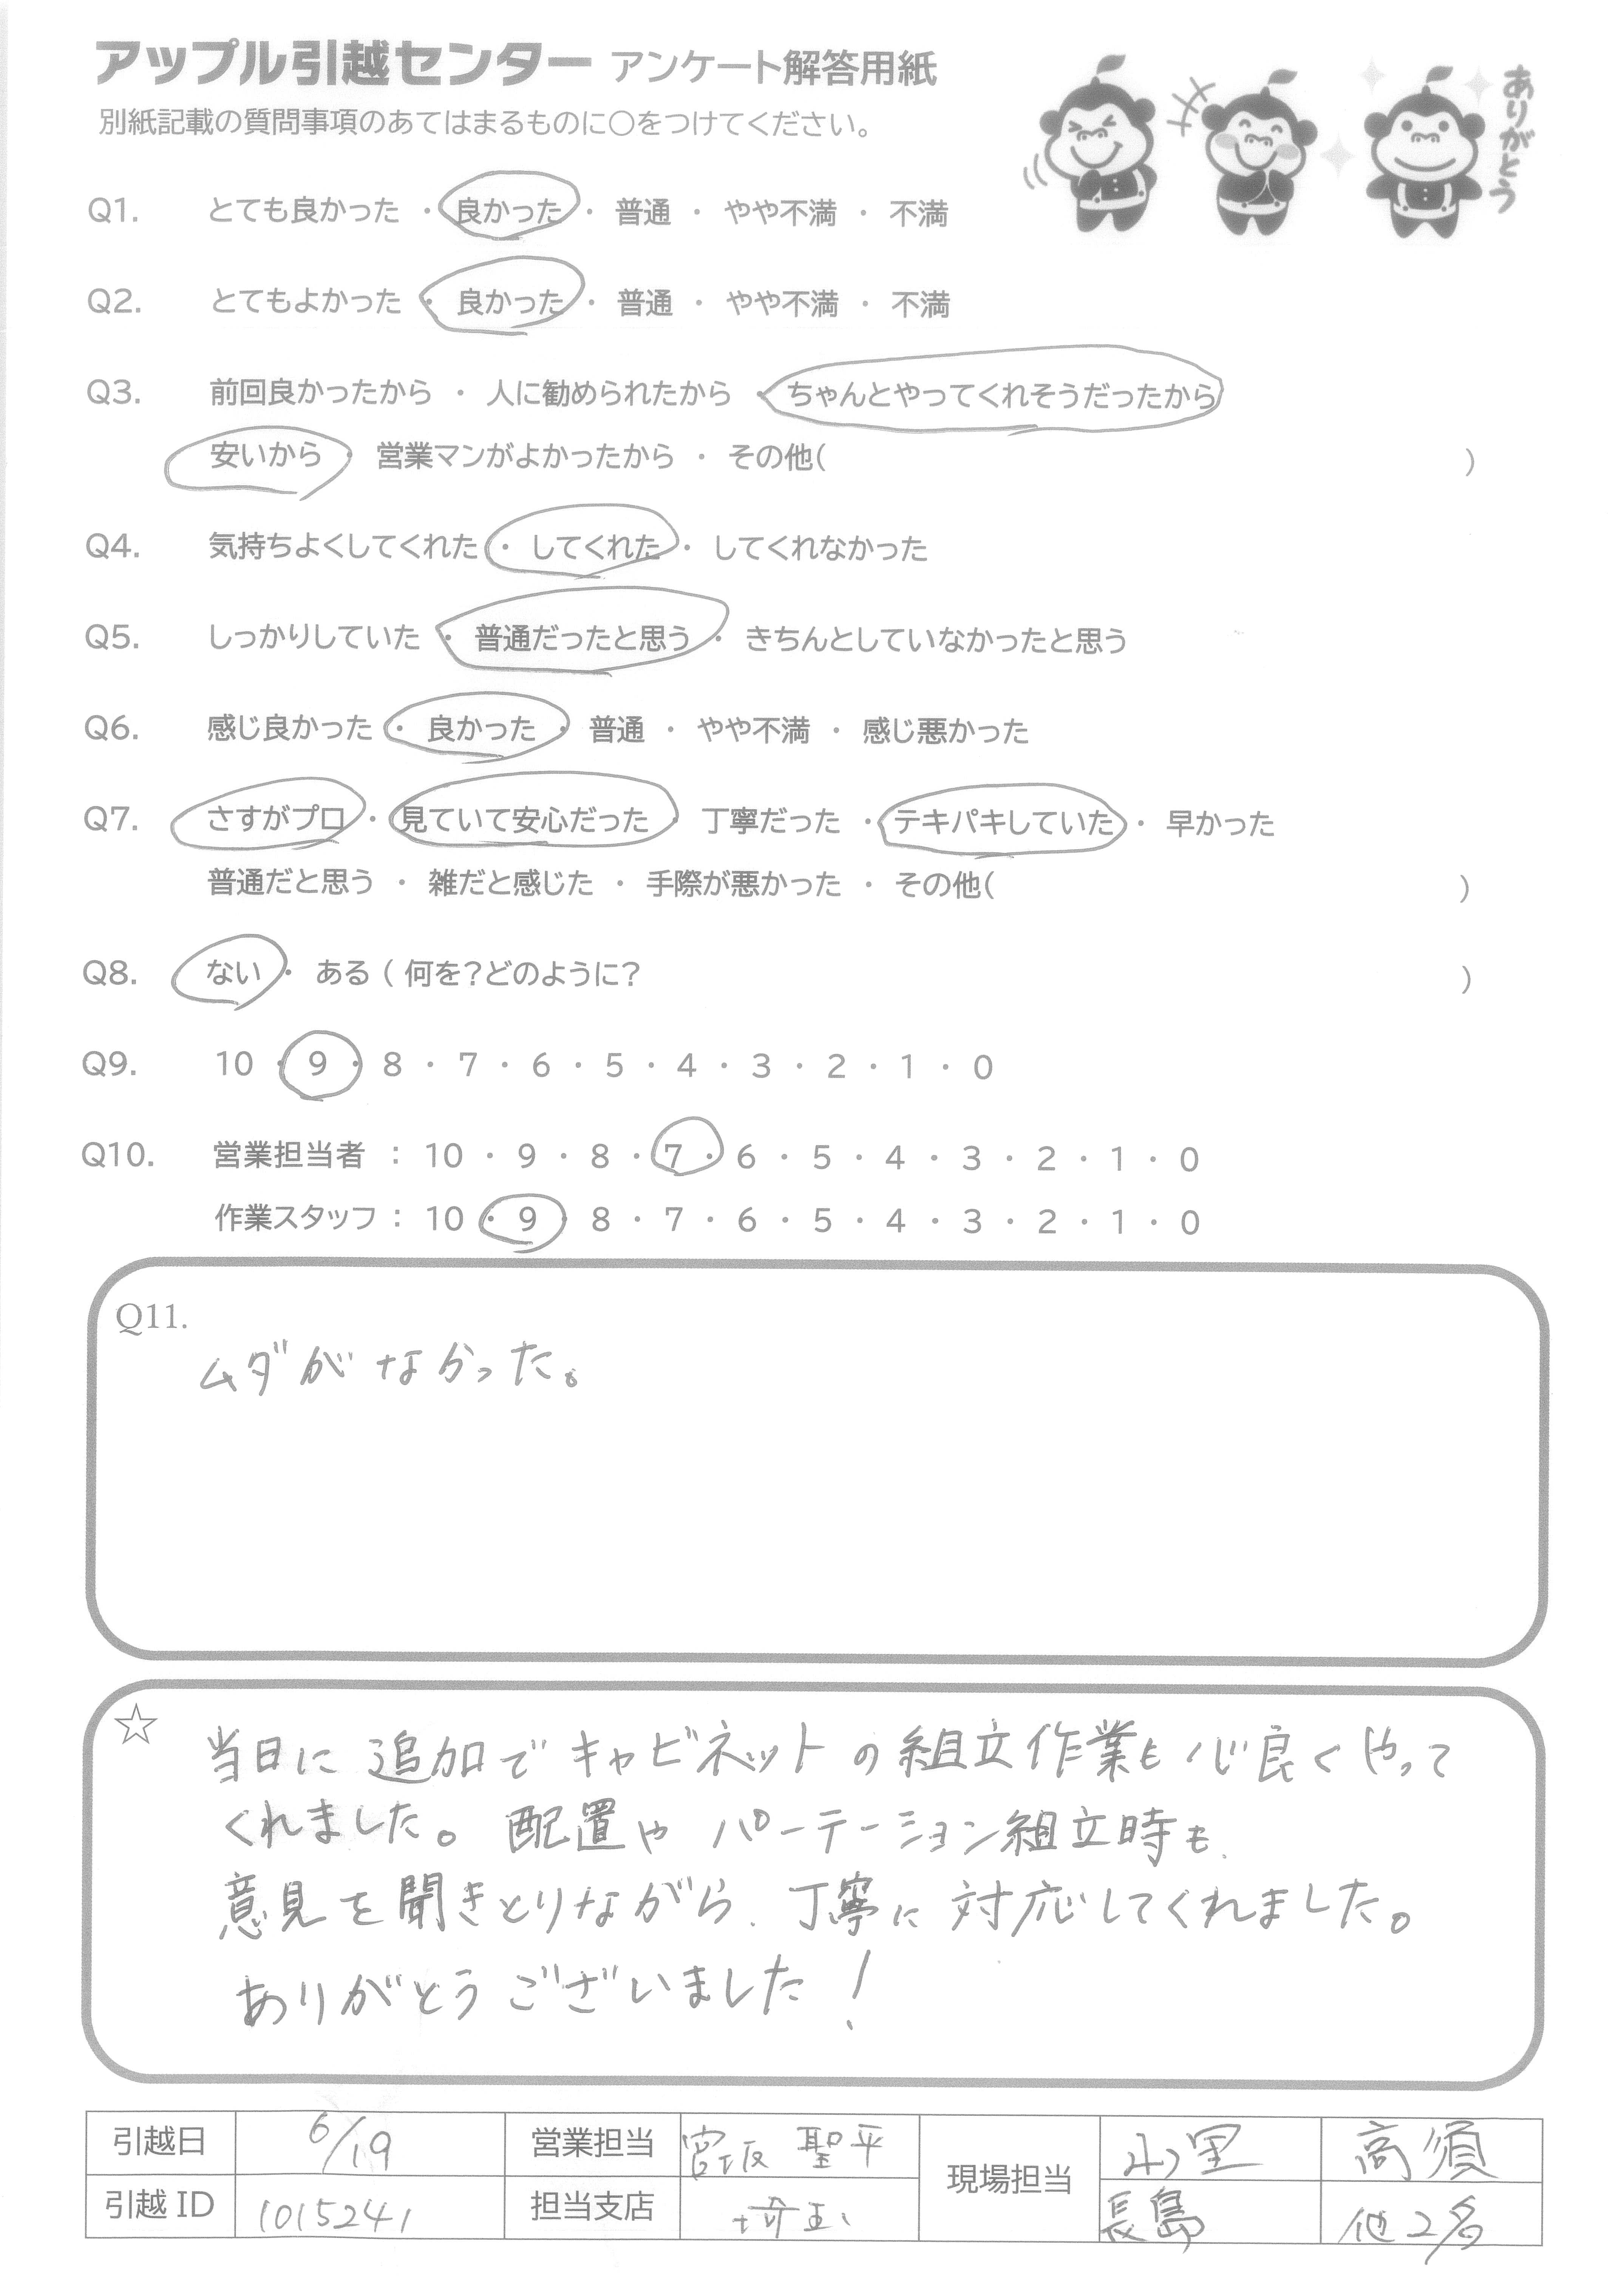 アップル引越センター アンケート解答用紙
別紙記載の質問事項のあてはまるものに○をつけてください。
ありがとう
Q1. とても良かった ・ 良かった ・ 普通 ・ やや不満 ・ 不満
Q2. とてもよかった ・ 良かった ・ 普通 ・ やや不満 ・ 不満
Q3. 前回良かったから ・ 人に勧められたから ・ ちゃんとやってくれそうだったから
安いから ・ 営業マンがよかったから ・ その他( )
Q4. 気持ちよくしてくれた ・ してくれた ・ してくれなかった
Q5. しっかりしていた ・ 普通だったと思う ・ きちんとしていなかったと思う
Q6. 感じ良かった ・ 良かった ・ 普通 ・ やや不満 ・ 感じ悪かった
Q7. さすがプロ ・ 見ていて安心だった ・ 丁寧だった ・ テキパキしていた ・ 早かった
普通だと思う ・ 雑だと感じた ・ 手際が悪かった ・ その他( )
Q8. ない ・ ある ( 何を?どのように? )
Q9. 10 ・ 9 ・ 8 ・ 7 ・ 6 ・ 5 ・ 4 ・ 3 ・ 2 ・ 1 ・ 0
Q10. 営業担当者 : 10 ・ 9 ・ 8 ・ 7 ・ 6 ・ 5 ・ 4 ・ 3 ・ 2 ・ 1 ・ 0
作業スタッフ : 10 ・ 9 ・ 8 ・ 7 ・ 6 ・ 5 ・ 4 ・ 3 ・ 2 ・ 1 ・ 0
Q11.
ムダがなかった。
☆ 当日に追加でキャビネットの組立作業も心良くやって
くれました。配置やパーテーション組立時も、
意見を聞きとりながら、丁寧に対応してくれました。
ありがとうございました!
引越日 6/19 営業担当 宮坂 聖平 現場担当 小里 高須
引越ID 1015241 担当支店 埼玉 長島 他2名